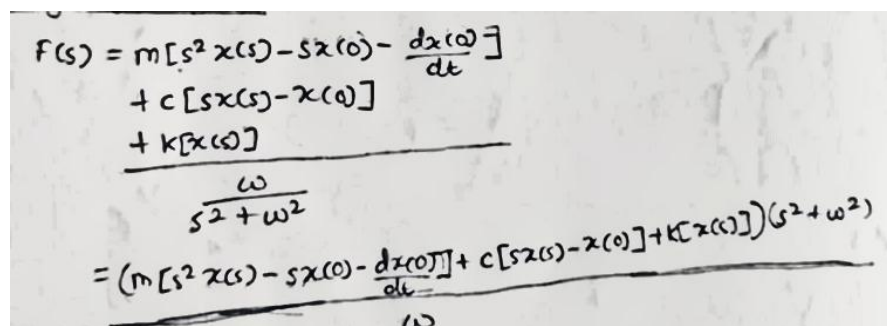 F(s) = m[s² x(s) - sx(0) - dx(0)/dt]
+ c[sx(s) - x(0)]
+ k[x(s)]
ω
s² + ω²
= (m[s² x(s) - sx(0) - dx(0)/dt] + c[sx(s) - x(0)] + k[x(s)])(s² + ω²)
ω